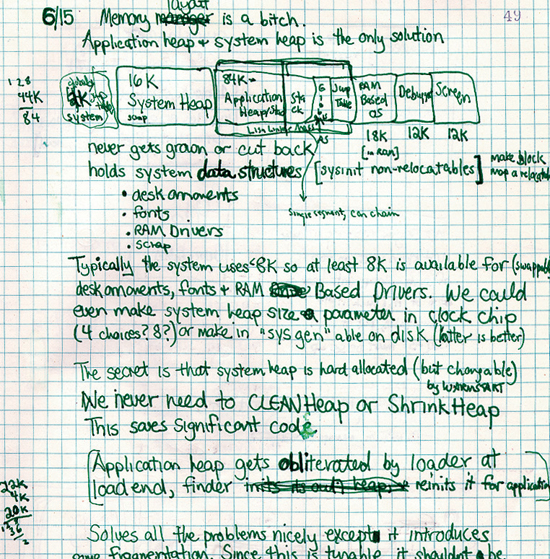 6/15
layout
49
Memory manager is a bitch.
Application heap + system heap is the only solution
128
44K
84
globals
4K
system
16K
System Heap
scrap
84K
Application
Heap
Sta
ck
Jump
Table
A5
RAM
Based
OS
18K
[in RAM]
Debug
12K
Screen
12K
never gets grown or cut back
holds system data structures [sysinit non-relocatables]
make block
• desk ornaments
• fonts
• RAM Drivers
• scrap
single segment, can chain
Typically the system uses <8K so at least 8K is available for (swappable
desk ornaments, fonts + RAM Based Drivers. We could
even make system heap size a parameter in clock chip
(4 choices? 8?) or make in "sys gen" able on disk (latter is better)
The secret is that system heap is hard allocated (but changable)
We never need to CLEANHeap or ShrinkHeap
This saves significant code
Application heap gets obliterated by loader at
load end, finder reinits it for application
4K
20K
Solves all the problems nicely except it introduces
some fragmentation. Since this is tunable, it shouldn't be